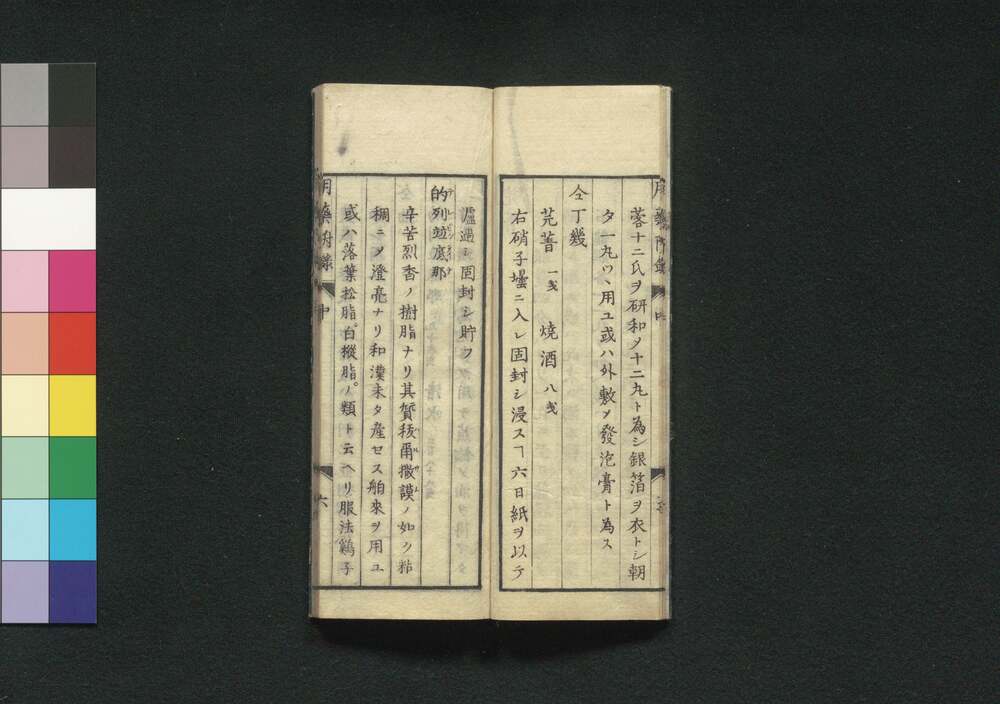 蓉十二氏ヲ研和〆十二丸ト為シ銀箔ヲ衣トシ朝
夕一丸ツヽ用ユ或ハ外敷〆發泡膏ト為ス
仝丁幾
芫菁 一戔 燒酒 八戔
右硝子壜ニ入レ固封シ浸スヿ六日紙ヲ以テ
濾過シ固封シ貯フ
的列並底那
辛苦烈香ノ樹脂ナリ其質抜爾撒謨ノ如ク粘
稠ニ〆澄亮ナリ和漢未タ産セス舶來ヲ用ユ
或ハ落葉松脂。白樅脂。ノ類ト云ヘリ服法鷄子
六